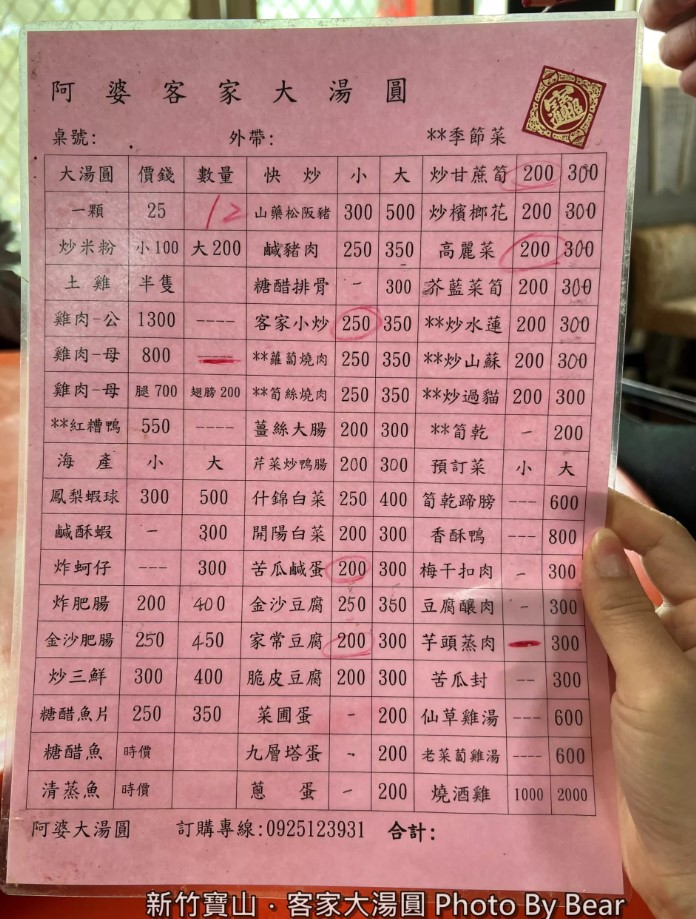 阿婆客家大湯圓
桌號: 外帶: **季節菜
大湯圓 價錢 數量 快炒 小 大 炒甘蔗筍 200 300
一顆 25 12 山藥松阪豬 300 500 炒檳榔花 200 300
炒米粉 小100 大200 鹹豬肉 250 350 高麗菜 200 300
土雞 半隻 糖醋排骨 - 300 芥藍菜筍 200 300
雞肉-公 1300 ---- 客家小炒 250 350 **炒水蓮 200 300
雞肉-母 800 ---- **蘿蔔燒肉 250 350 **炒山蘇 200 300
雞肉-母 腿700 翅膀200 **筍絲燒肉 250 350 **炒過貓 200 300
**紅糟鴨 550 ---- 薑絲大腸 200 300 **筍乾 - 200
海產 小 大 芹菜炒鴨腸 200 300 預訂菜 小 大
鳳梨蝦球 300 500 什錦白菜 250 400 筍乾蹄膀 --- 600
鹹酥蝦 - 300 開陽白菜 200 300 香酥鴨 --- 800
炸蚵仔 --- 300 苦瓜鹹蛋 200 300 梅干扣肉 - 300
炸肥腸 200 400 金沙豆腐 250 350 豆腐釀肉 - 300
金沙肥腸 250 450 家常豆腐 200 300 芋頭蒸肉 - 300
炒三鮮 300 400 脆皮豆腐 200 300 苦瓜封 -- 300
糖醋魚片 250 350 菜圃蛋 - 200 仙草雞湯 --- 600
糖醋魚 時價 九層塔蛋 - 200 老菜蔔雞湯 ---- 600
清蒸魚 時價 蔥蛋 - 200 燒酒雞 1000 2000
阿婆大湯圓 訂購專線:0925123931 合計:
新竹寶山．客家大湯圓 Photo By Bear